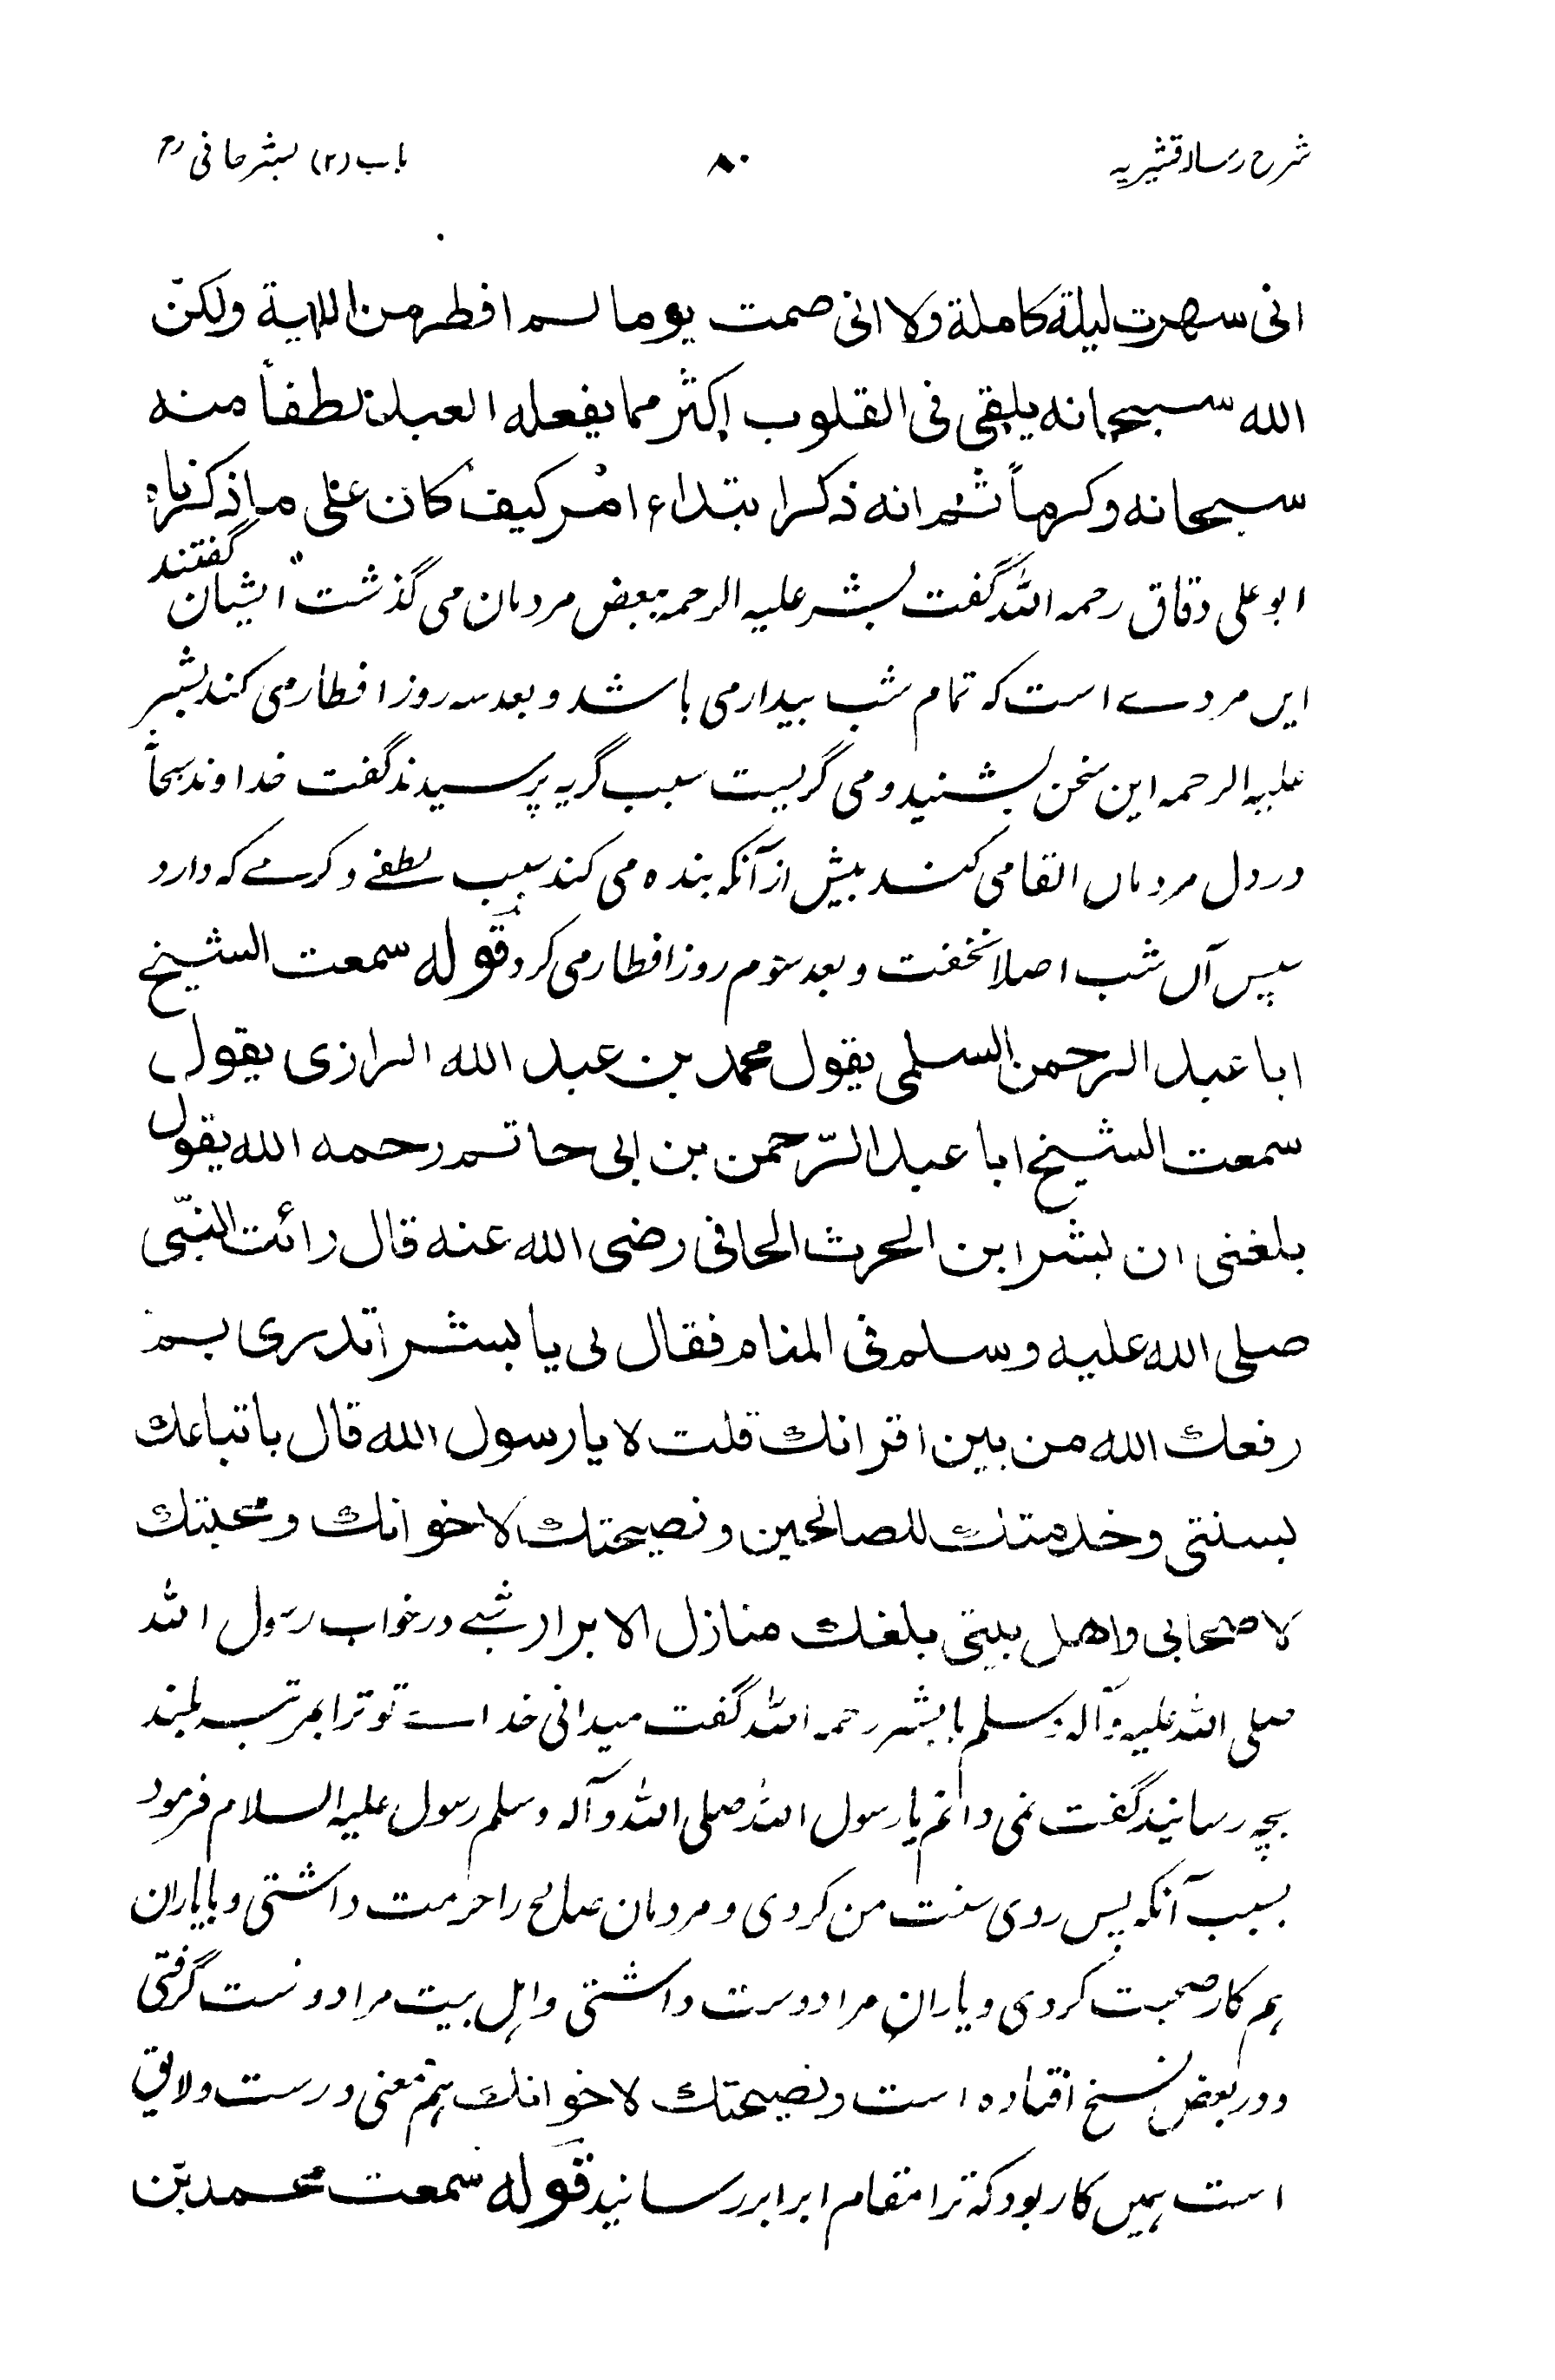 شرح رسالہ قشیریہ ۸۰ باب (۲) بشر حافی رح
انی سهرت لیلة کاملة ولا انی صمت یوما لم افطر من اللیة ولکنّ
الله سبحانه یلقی فی القلوب اکثر مما یفعله العبد لطفاً منه
سبحانه وکرماً ثم انه ذکر ابتداء امر کیف کان علی ما ذکرناه
ابو علی دقاق رحمه الله گفت بشر علیه الرحمه ببعض مردمان می گذشت ایشان گفتند
ایں مردے است که تمام شب بیدار می باشد و بعد سه روز افطار می کند بشر
علیه الرحمه این سخن بشنید و می گریست سبب گریه پرسیدند گفت خداوند سبحانهٗ
در دل مردماں القا می کند بیش از آنکه بنده می کند بسبب لطفے و کرمے که دارد
سپس آں شب اصلا نخفت و بعد سوم روز افطار می کرد قوله سمعت الشیخ
ابا عبد الرحمن السلمی یقول محمد بن عبد الله الرازی یقول
سمعت الشیخ ابا عبد الرّحمن بن ابی حاتم رحمه الله یقول
بلغنی ان بشر ابن الحرث الحافی رضی الله عنه قال رائت النبّی
صلی الله علیه وسلم فی المنام فقال لی یا بشر اتدری بم
رفعك الله من بین اقرانك قلت لا یا رسول الله قال باتباعك
لسنتی وخدمتك للصالحین ونصیحتك لاخوانك ومحبتك
لاصحابی واهل بیتی بلغك منازل الابرار شبے در خواب رسول الله
صلی الله علیه وآله وسلم با بشر رحمه الله گفت میدانی خداست تو ترا بمرتبه بلند
بچه رسانید گفت نمی دانم یا رسول الله صلی الله وآله وسلم رسول علیه السلام فرمود
بسبب آنکه پس روی سنت من کردی و مردمان صالح را حرمت داشتی و با یاران
هم کار صحبت کردی و یاران مرا دوست داشتی و اهل بیت مرا دوست گرفتی
و در بعض نسخ افتاده است ونصیحتك لاخوانك هم معنی درست و لایق
است ہمیں کار بود که ترا مقام ابرار رسانید قوله سمعت محمد بن